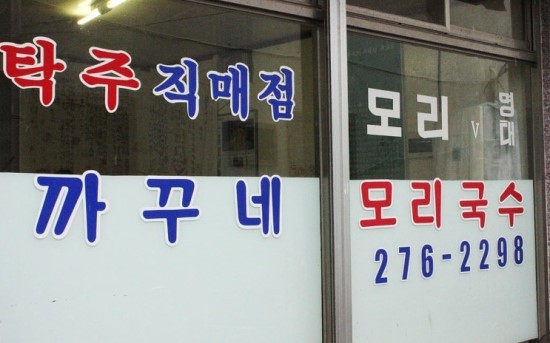 탁주 직매점
까꾸네
모리 v 명태
모리국수
276-2298